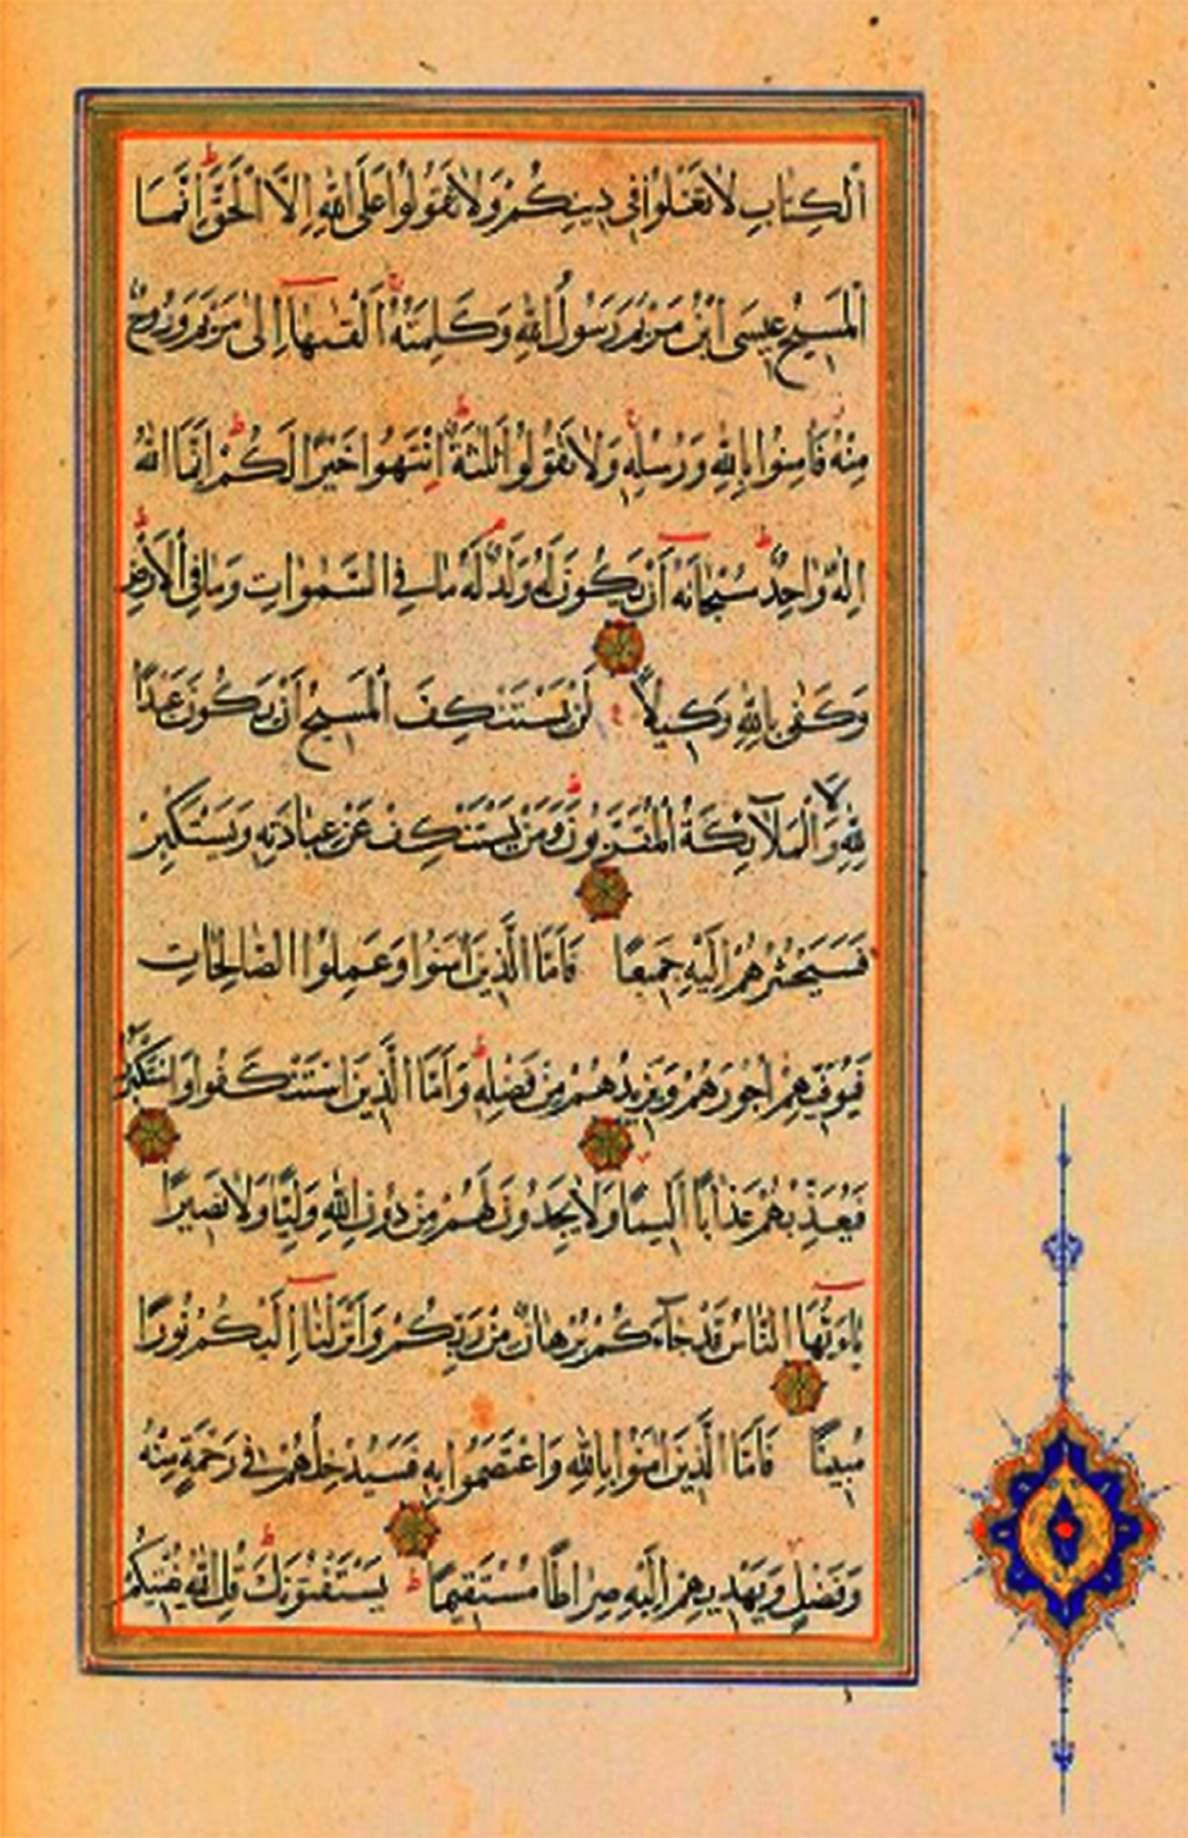 الكِتابِ لَا تَغْلُوا فِي دِينِكُمْ وَلَا تَقُولُوا عَلَى اللهِ إِلَّا الْحَقَّ إِنَّمَا
الْمَسِيحُ عِيسَى ابْنُ مَرْيَمَ رَسُولُ اللهِ وَكَلِمَتُهُ أَلْقٰىهَا إِلٰى مَرْيَمَ وَرُوحٌ
مِنْهُ فَآمِنُوا بِاللهِ وَرُسُلِهِ وَلَا تَقُولُوا ثَلٰثَةٌ انْتَهُوا خَيْرًا لَكُمْ إِنَّمَا اللهُ
إِلٰهٌ وَاحِدٌ سُبْحَانَهُ أَنْ يَكُونَ لَهُ وَلَدٌ لَهُ مَا فِي السَّمٰوَاتِ وَمَا فِي الْأَرْضِ
وَكَفٰى بِاللهِ وَكِيلًا لَنْ يَسْتَنْكِفَ الْمَسِيحُ أَنْ يَكُونَ عَبْدًا
لِلّٰهِ وَلَا الْمَلَآئِكَةُ الْمُقَرَّبُونَ وَمَنْ يَسْتَنْكِفْ عَنْ عِبَادَتِهِ وَيَسْتَكْبِرْ
فَسَيَحْشُرُهُمْ إِلَيْهِ جَمِيعًا فَأَمَّا الَّذِينَ آمَنُوا وَعَمِلُوا الصَّالِحَاتِ
فَيُوَفِّيهِمْ أُجُورَهُمْ وَيَزِيدُهُمْ مِنْ فَضْلِهِ وَأَمَّا الَّذِينَ اسْتَنْكَفُوا وَاسْتَكْبَرُوا
فَيُعَذِّبُهُمْ عَذَابًا أَلِيمًا وَلَا يَجِدُونَ لَهُمْ مِنْ دُونِ اللهِ وَلِيًّا وَلَا نَصِيرًا
يَاءَيُّهَا النَّاسُ قَدْ جَآءَكُمْ بُرْهَانٌ مِنْ رَبِّكُمْ وَأَنْزَلْنَا إِلَيْكُمْ نُورًا
مُبِينًا فَأَمَّا الَّذِينَ آمَنُوا بِاللهِ وَاعْتَصَمُوا بِهِ فَسَيُدْخِلُهُمْ فِي رَحْمَةٍ مِنْهُ
وَفَضْلٍ وَيَهْدِيهِمْ إِلَيْهِ صِرَاطًا مُسْتَقِيمًا يَسْتَفْتُونَكَ قُلِ اللهُ يُفْتِيكُمْ